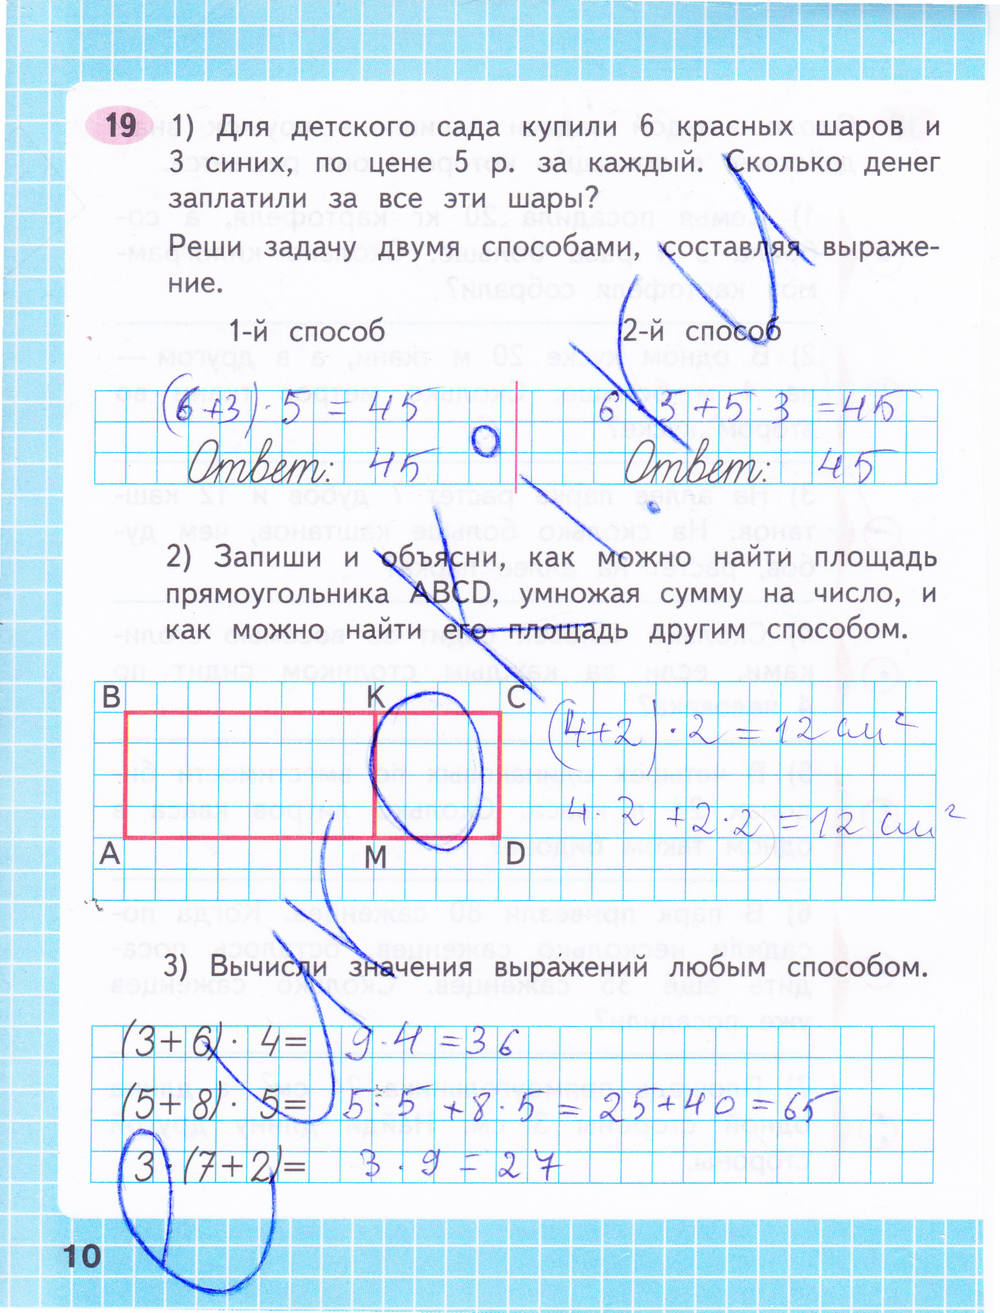 19 1) Для детского сада купили 6 красных шаров и
3 синих, по цене 5 р. за каждый. Сколько денег
заплатили за все эти шары?
Реши задачу двумя способами, составляя выраже-
ние.
1-й способ 2-й способ
(6+3) · 5 = 45 6 · 3 + 5 · 3 = 45
Ответ: 45 Ответ: 45
2) Запиши и объясни, как можно найти площадь
прямоугольника ABCD, умножая сумму на число, и
как можно найти его площадь другим способом.
B K C
(4+2) · 2 = 12 см²
4 · 2 + 2 · 2 = 12 см²
A M D
3) Вычисли значения выражений любым способом.
(3+6) · 4 = 9 · 4 = 36
(5+8) · 5 = 5 · 5 + 8 · 5 = 25 + 40 = 65
3 · (7+2) = 3 · 9 = 27
10